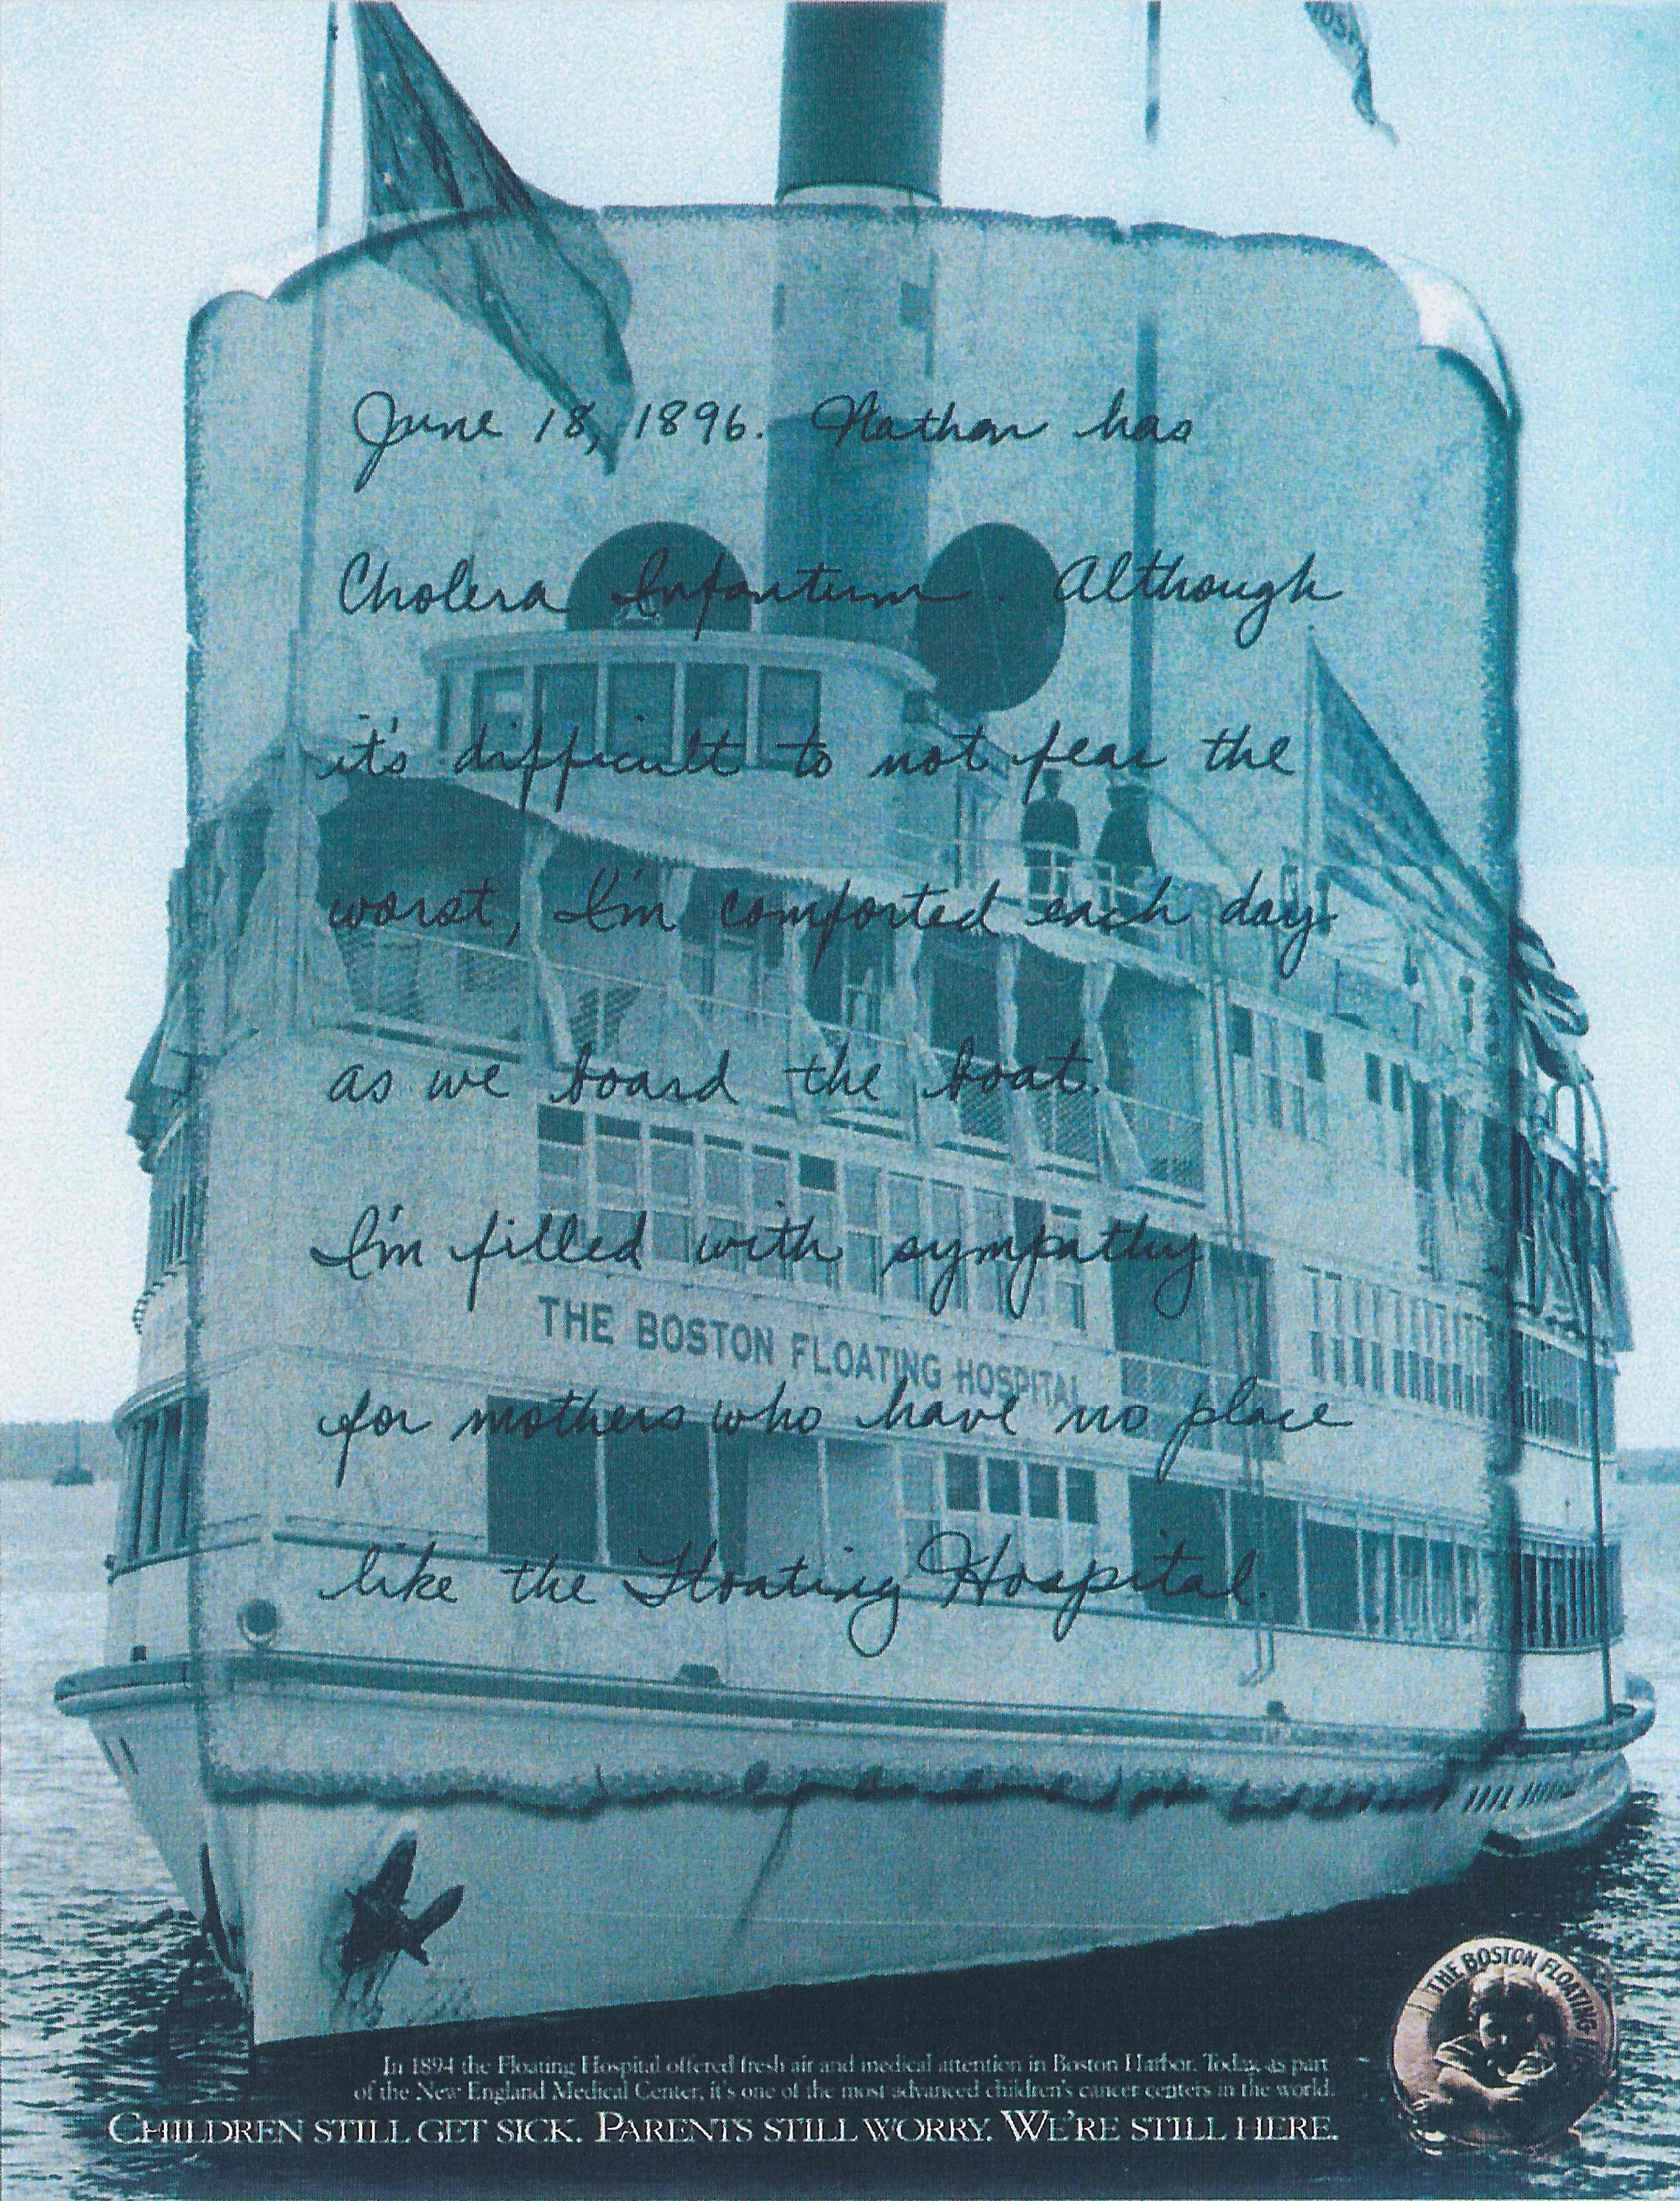 June 18, 1896. Nathan has
Cholera Infantum. Although
it's difficult to not fear the
worst, I'm comforted each day
as we board the boat.
I'm filled with sympathy
THE BOSTON FLOATING HOSPITAL
for mothers who have no place
like the Floating Hospital.
THE BOSTON FLOATING
In 1894 the Floating Hospital offered fresh air and medical attention in Boston Harbor. Today, as part
of the New England Medical Center, it's one of the most advanced children's cancer centers in the world.
CHILDREN STILL GET SICK. PARENTS STILL WORRY. WE'RE STILL HERE.